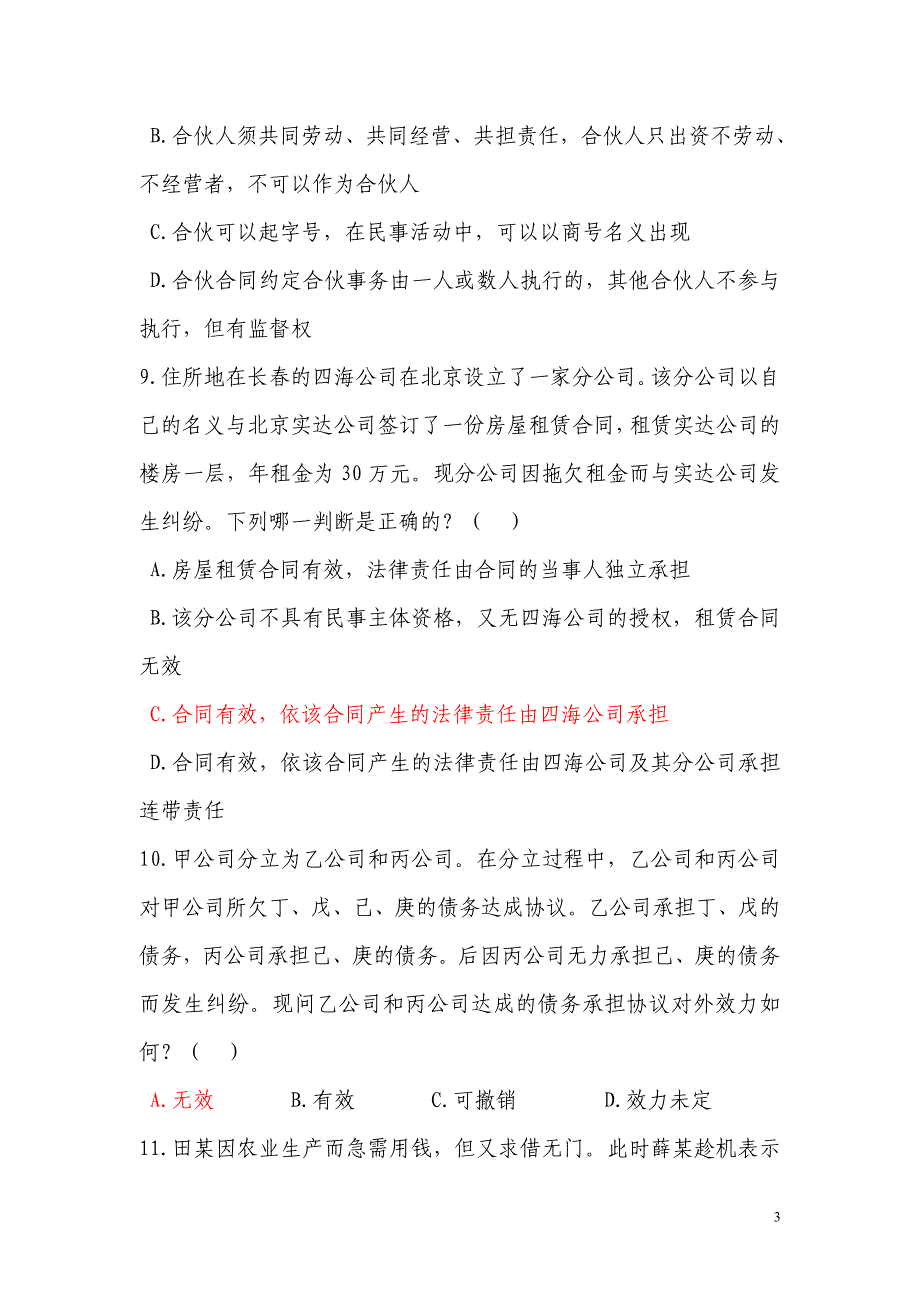 B.合伙人须共同劳动、共同经营、共担责任，合伙人只出资不劳动、
不经营者，不可以作为合伙人
C.合伙可以起字号，在民事活动中，可以以商号名义出现
D.合伙合同约定合伙事务由一人或数人执行的，其他合伙人不参与
执行，但有监督权
9.住所地在长春的四海公司在北京设立了一家分公司。该分公司以自
己的名义与北京实达公司签订了一份房屋租赁合同，租赁实达公司的
楼房一层，年租金为 30 万元。现分公司因拖欠租金而与实达公司发
生纠纷。下列哪一判断是正确的？（ ）
A.房屋租赁合同有效，法律责任由合同的当事人独立承担
B.该分公司不具有民事主体资格，又无四海公司的授权，租赁合同
无效
C.合同有效，依该合同产生的法律责任由四海公司承担
D.合同有效，依该合同产生的法律责任由四海公司及其分公司承担
连带责任
10.甲公司分立为乙公司和丙公司。在分立过程中，乙公司和丙公司
对甲公司所欠丁、戊、己、庚的债务达成协议。乙公司承担丁、戊的
债务，丙公司承担己、庚的债务。后因丙公司无力承担己、庚的债务
而发生纠纷。现问乙公司和丙公司达成的债务承担协议对外效力如
何？（ ）
A.无效 B.有效 C.可撤销 D.效力未定
11.田某因农业生产而急需用钱，但又求借无门。此时薛某趁机表示
3